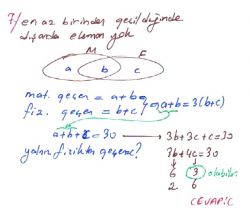 7/ en az birinden geçildiğinde
dışarda eleman yok
M F
a b c
mat. geçen = a+b
fiz. geçen = b+c
a+b=3(b+c)
a+b+c=30 → 3b+3c+c=30
yalnız fizikten geçene? 3b+4c=30
6 3 olabilir
2 6
CEVAP:C